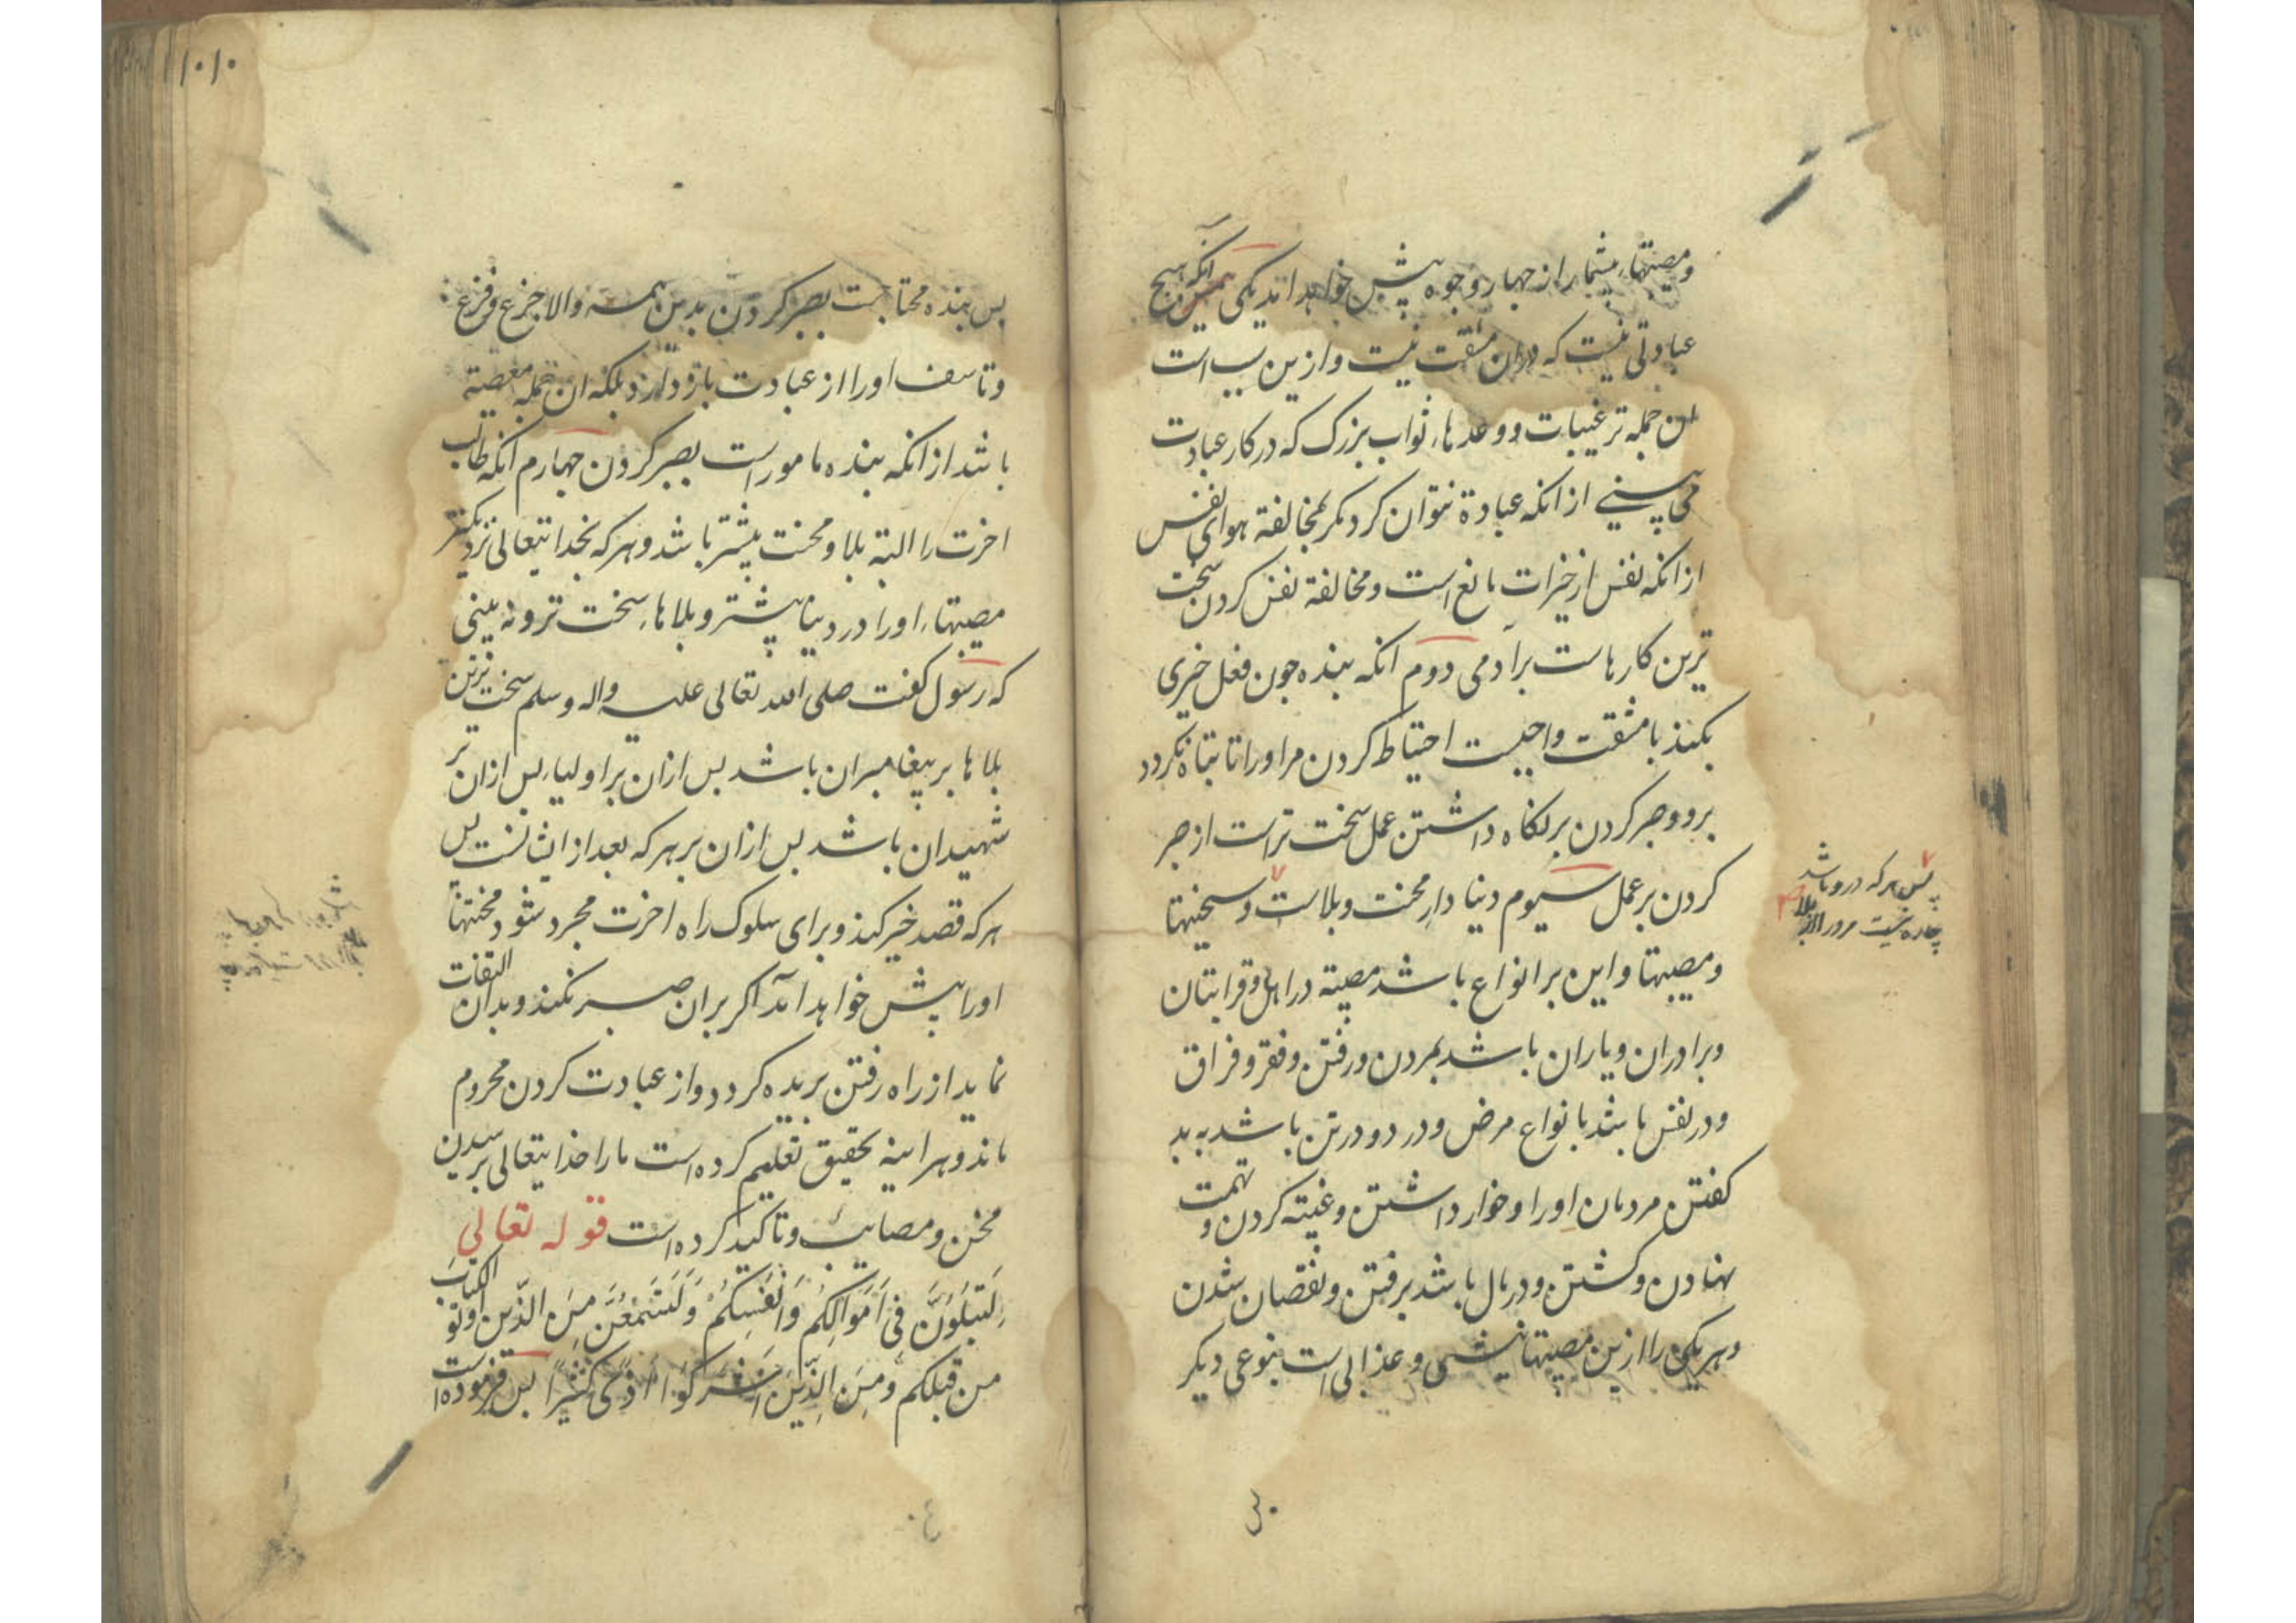 ومصیبتهاء بیشمار از چهار وجوه پیش خواهد آمد یکی آنکه هیچ
عبادتی نیست که دران مشقت نیست وازین سبب است
این جمله ترغیبات ووعدهاء ثواب بزرک که در کار عبادت
می بینے ازانکه عبادة نتوان کرد مکر بمخالفة هوای نفس
ازانکه نفس از خیرات مانع است ومخالفة نفس کردن سخت
ترین کارهاست برآدمی دوم آنکه بنده چون فعل خیری
بکند با مشقت واجبست احتیاط کردن مر اورا تا تباه نکردد
برو وصبر کردن برنکاه داشتن عمل سخت تر است از صبر
کردن بر عمل سیوم دنیا دار محنت وبلاست وسختیها
ومصیبتها واین بر انواع باشد مصیبة در اهل وقرابتان
وبرادران ویاران باشد بمردن ورفتن وفقر وفراق
ودر نفس باشد بانواع مرض ودرد ودر تن باشد به بد
کفتن مردمان اورا وخوار داشتن وغیبة کردن وتهمت
نهادن وکشتن ودر مال باشد برفتن ونقصان شدن
وهر یکی را ازین مصیبتها نیشی وعذابی است بنوعی دیکر
پس هر که درو باشد
چاره نیست مر ورا از بلا
۱۰۱۰
پس بنده محتاجست بصبر کردن بدین همه والا جزع وفزع
وتاسف اورا از عبادت باز دارد بلکه ان جمله معصیة
باشد ازانکه بنده ماموراست بصبر کردن چهارم آنکه طالب
اخرت را البته بلا ومحنت بیشتر باشد وهر که بخدایتعالی نزدیکتر
مصیبتهاء اورا در دنیا پیشتر وبلاهاء سخت تر ونه بینی
که رسول کفت صلی الله تعالی علیه واله وسلم سخت ترین
بلاها بر پیغامبران باشد پس ازان بر اولیا پس ازان بر
شهیدان باشد پس ازان بر هر که بعد از ایشانست پس
هر که قصد خیر کند وبرای سلوک راه اخرت مجرد شود محنتها
اورا پیش خواهد آمد اکر بران صبر نکند وبدان التفات
نماید از راه رفتن بریده کردد واز عبادت کردن محروم
ماند وهراینه بتحقیق تعلیم کرده است مارا خدایتعالی برسیدن
محن ومصایب وتاکید کرده است قوله تعالی
لَتُبْلَوُنَّ فِی اَمْوَالِکُمْ وَاَنْفُسِکُمْ وَلَتَسْمَعُنَّ مِنَ الَّذِینَ اُوتُو الکِتَابَ
مِن قَبلِکُم وَمِنَ الَّذِینَ اَشْرَکُوا اَذًی کَثِیرًا پس فرموده است